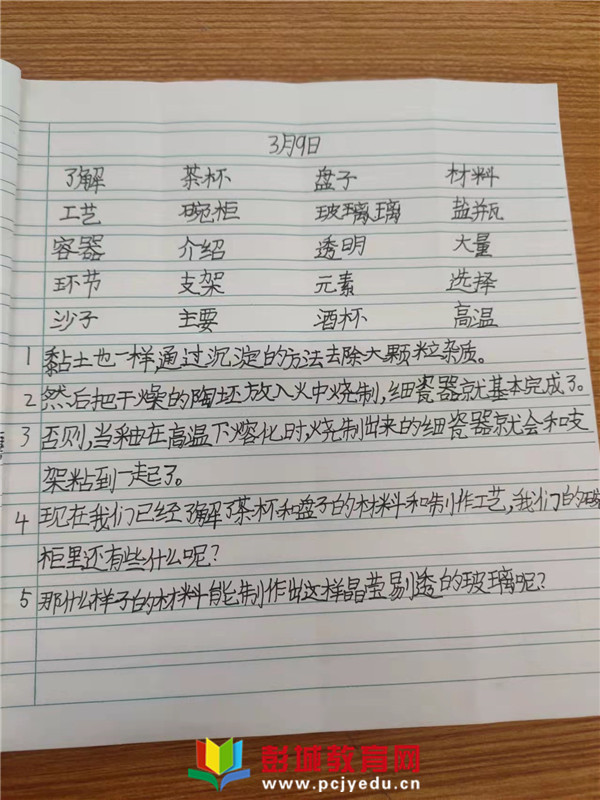 3月9日
了解 茶杯 盘子 材料
工艺 碗柜 玻璃 璃 盐瓶
容器 介绍 透明 大量
环节 支架 元素 选择
沙子 主要 酒杯 高温
1 黏土也一样,通过沉淀的方法去除大颗粒杂质。
2 然后把干燥的陶坯放入火中烧制,细瓷器就基本完成了。
3 否则,当釉在高温下熔化时,烧制出来的细瓷器就会和支
架粘到一起了。
4 现在我们已经了解了茶杯和盘子的材料和制作工艺,我们的碗
柜里还有些什么呢?
5 那什么样子的材料能制作出这样晶莹剔透的玻璃呢?
彭城教育网
www.pcjyedu.cn